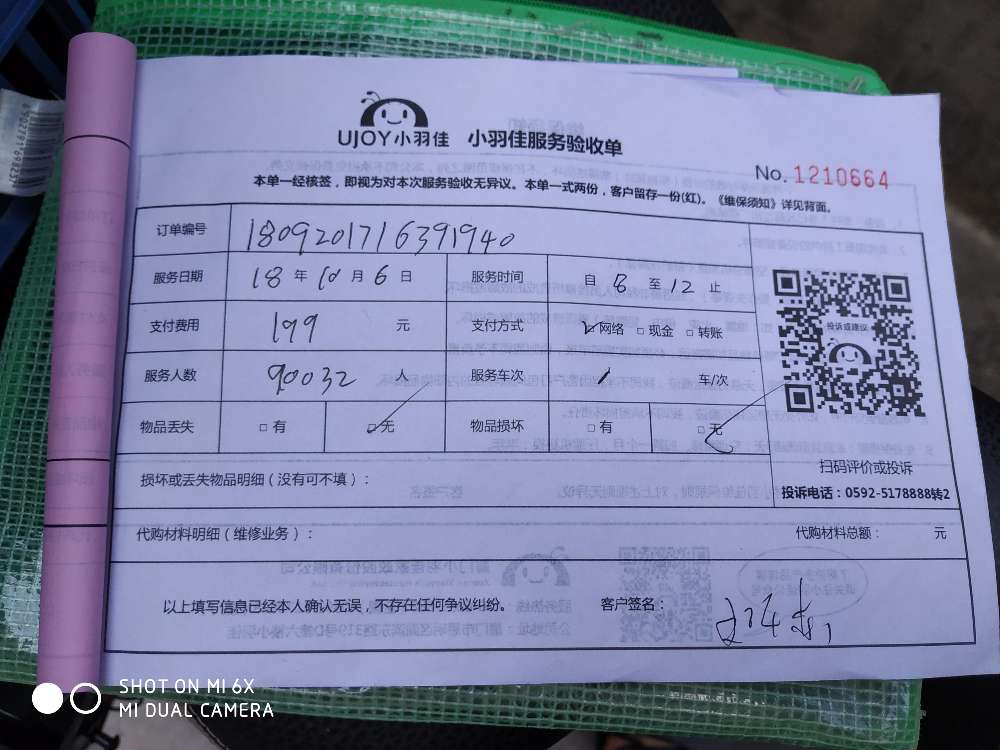 UJOY小羽佳 小羽佳服务验收单
No. 1210664
本单一经核签，即视为对本次服务验收无异议。本单一式两份，客户留存一份(红)。《维保须知》详见背面。
订单编号 1809201716391940
服务日期 18 年 10 月 6 日 服务时间 自 8 至 12 止
支付费用 199 元 支付方式 ☑网络 □现金 □转账
投诉或建议
服务人数 90032 人 服务车次 1 车/次
物品丢失 □有 ☑无 物品损坏 □有 ☑无
扫码评价或投诉
损坏或丢失物品明细（没有可不填）：
投诉电话：0592-5178888转2
代购材料明细（维修业务）： 代购材料总额： 元
以上填写信息已经本人确认无误，不存在任何争议纠纷。 客户签名：
SHOT ON MI 6X
MI DUAL CAMERA